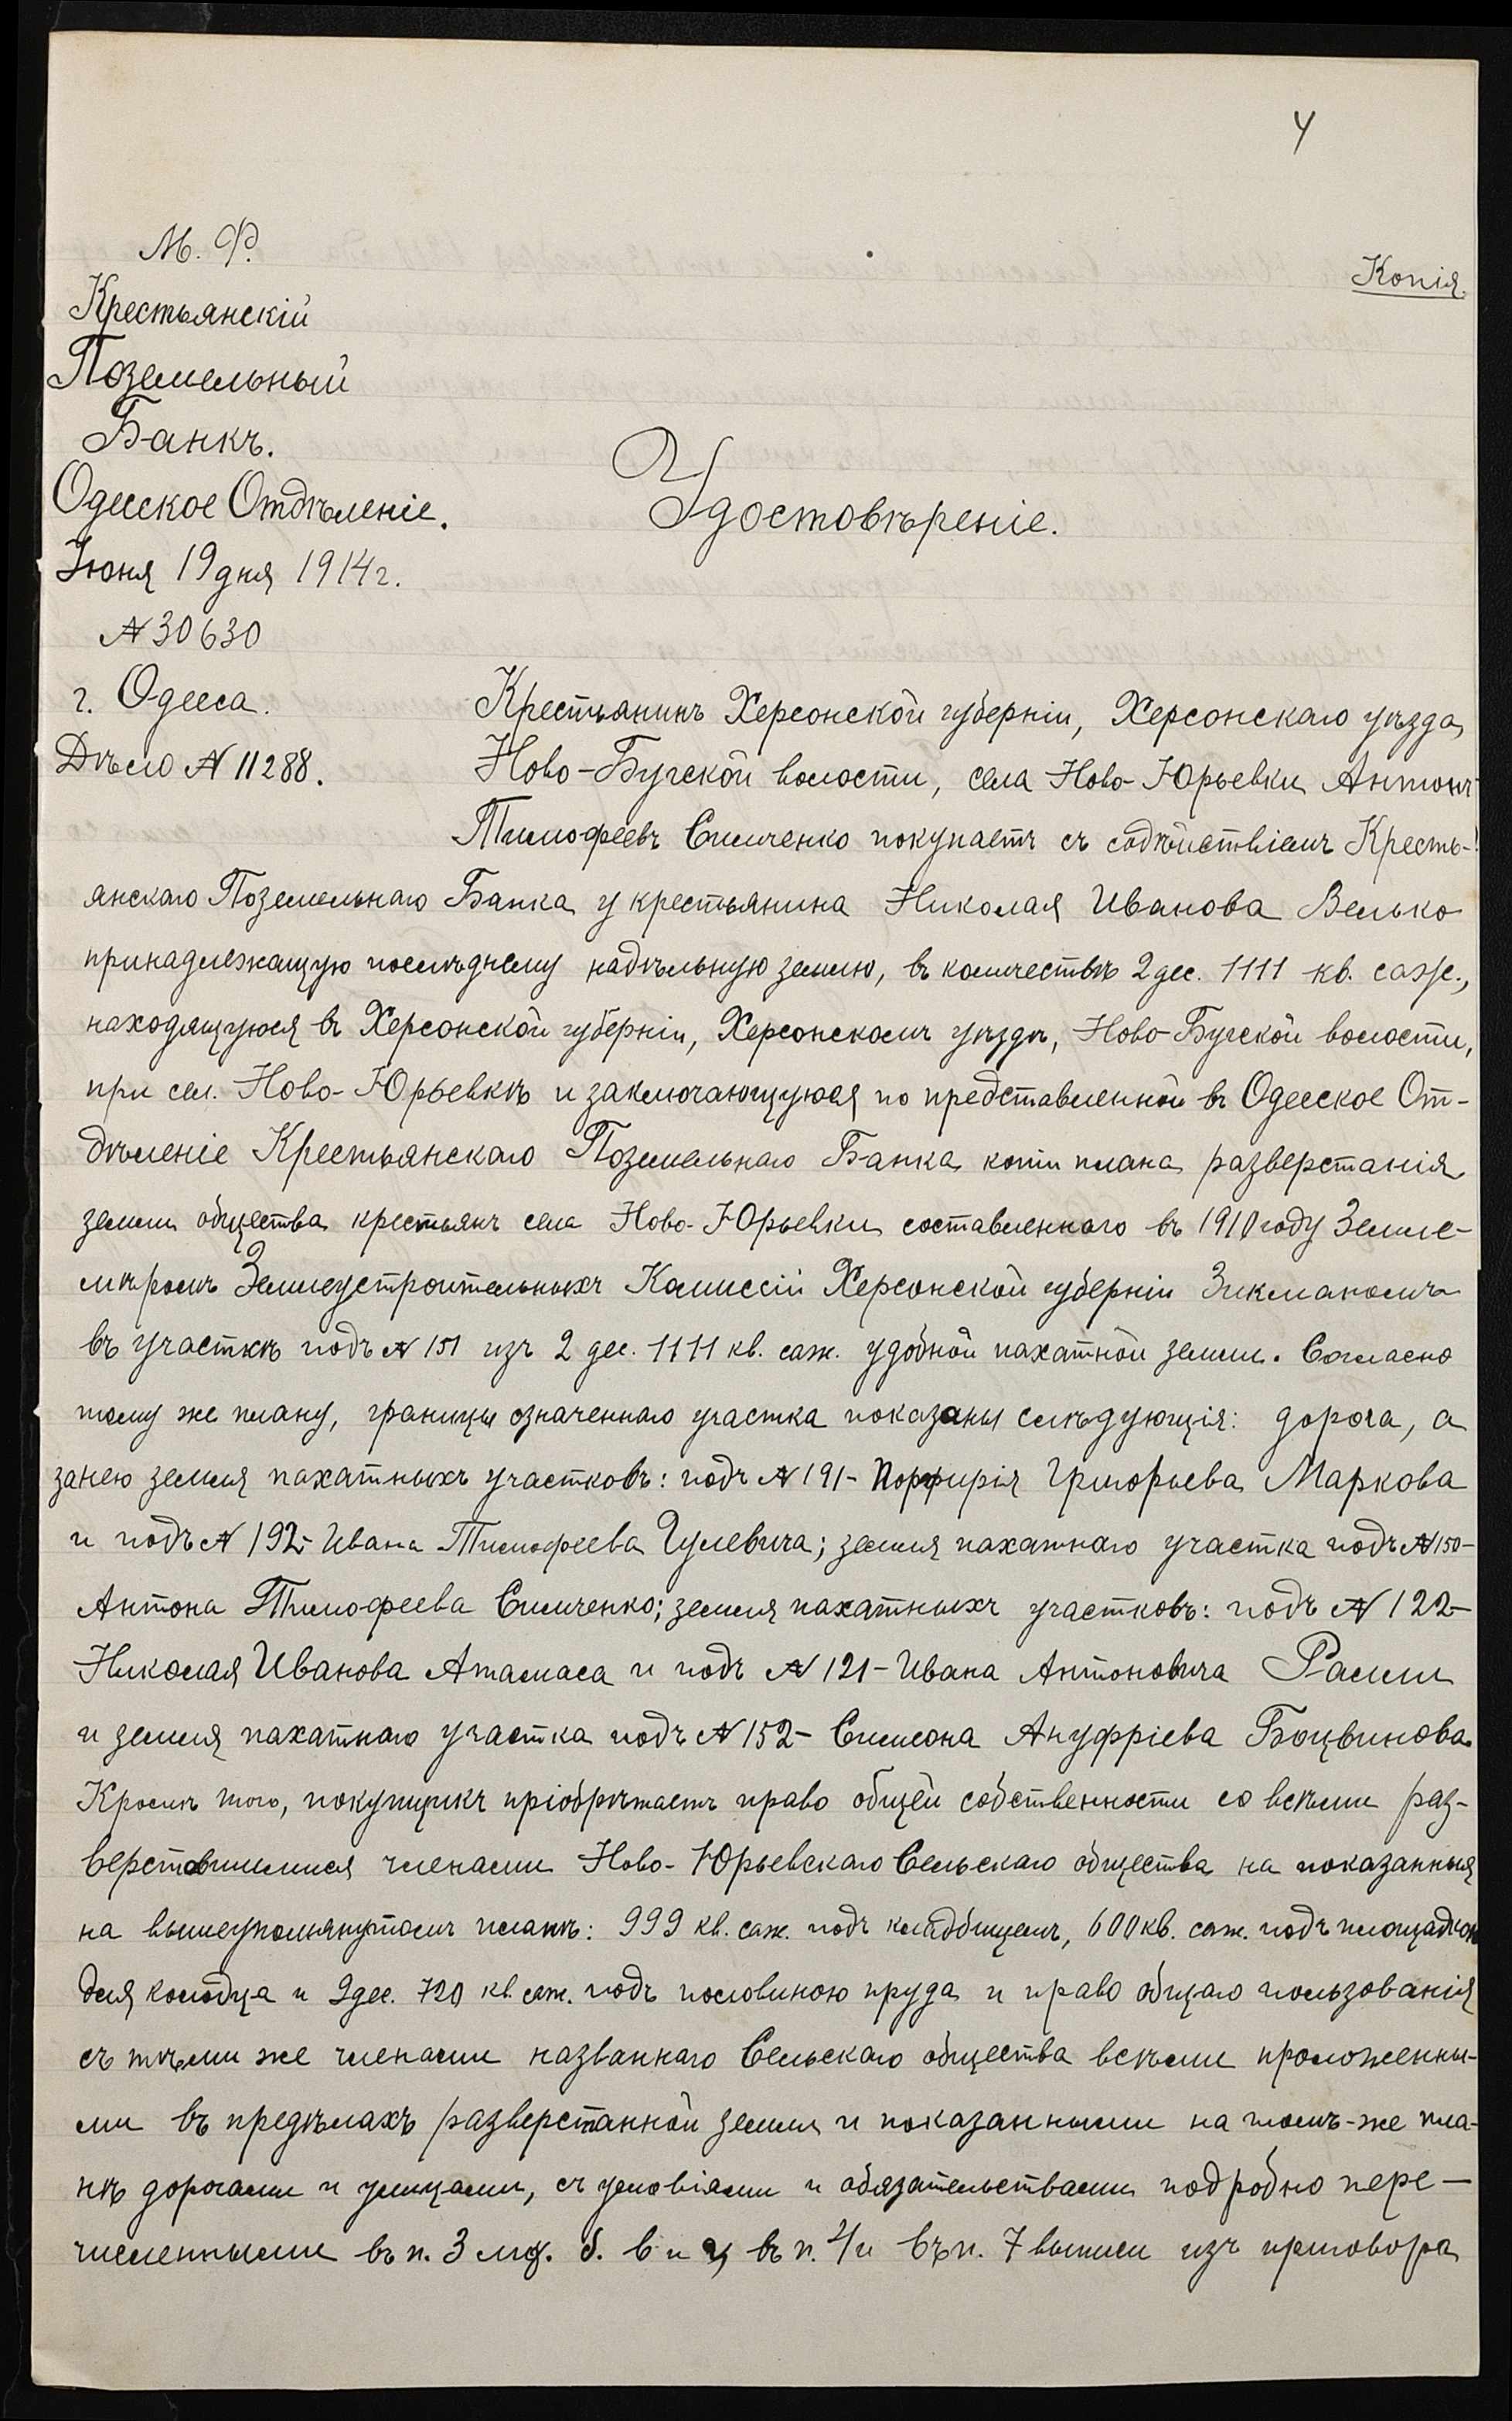 4
М. Ф.
Копія.
Крестьянскій
Поземельный
Банкъ.
Одесское Отдѣленіе.
Удостовѣреніе.
Іюня 19 дня 1914 г.
№ 30630
г. Одесса.
Дѣло № 11288.
Крестьянинъ Херсонской губерніи, Херсонскаго уѣзда,
Ново-Бугской волости, села Ново-Юрьевки Антонъ
Тимофеевъ Симченко покупаетъ съ содѣйствіемъ Кресть-
янскаго Поземельнаго Банка у крестьянина Николая Иванова Велько
принадлежащую послѣднему надѣльную землю, въ количествѣ 2 дес. 1111 кв. саж.,
находящуюся въ Херсонской губерніи, Херсонскомъ уѣздѣ, Ново-Бугской волости,
при сел. Ново-Юрьевкѣ и заключающуюся по представленной въ Одесское От-
дѣленіе Крестьянскаго Поземельнаго Банка копіи плана разверстанія
земли общества крестьянъ села Ново-Юрьевки составленнаго въ 1910 году Земле-
мѣромъ Землеустроительныхъ Комиссій Херсонской губерніи Зикманомъ
въ участкѣ подъ № 151 изъ 2 дес. 1111 кв. саж. удобной пахатной земли. Согласно
тому же плану, границы означеннаго участка показаны слѣдующія: дорога, а
занею земля пахатныхъ участковъ: подъ № 191 - Порфирія Григорьева Маркова
и подъ № 192 - Ивана Тимофеева Гулевича; земля пахатнаго участка подъ № 150 -
Антона Тимофеева Симченко; земля пахатныхъ участковъ: подъ № 122 -
Николая Иванова Атамаса и подъ № 121 - Ивана Антоновича
и земля пахатнаго участка подъ № 152 - Симеона Ануфріева Боцвинова.
Кромѣ того, покупщикъ пріобрѣтаетъ право общей собственности со всѣми раз-
верставшимися членами Ново-Юрьевскаго Сельскаго общества на показанныя
на вышеупомянутомъ планѣ: 999 кв. саж. подъ кладбищемъ, 600 кв. саж. подъ площадкою
для колодца и 2 дес. 720 кв. саж. подъ половиною пруда и право общаго пользованія
съ тѣми же членами названнаго Сельскаго общества всѣми проложенны-
ми въ предѣлахъ разверстанной земли и показанными на томъ-же пла-
нѣ дорогами и улицами, съ условіями и обязательствами подробно пере-
численными въ п. 3 б. в и въ п. 4 и въ п. 7 выписи изъ приговора